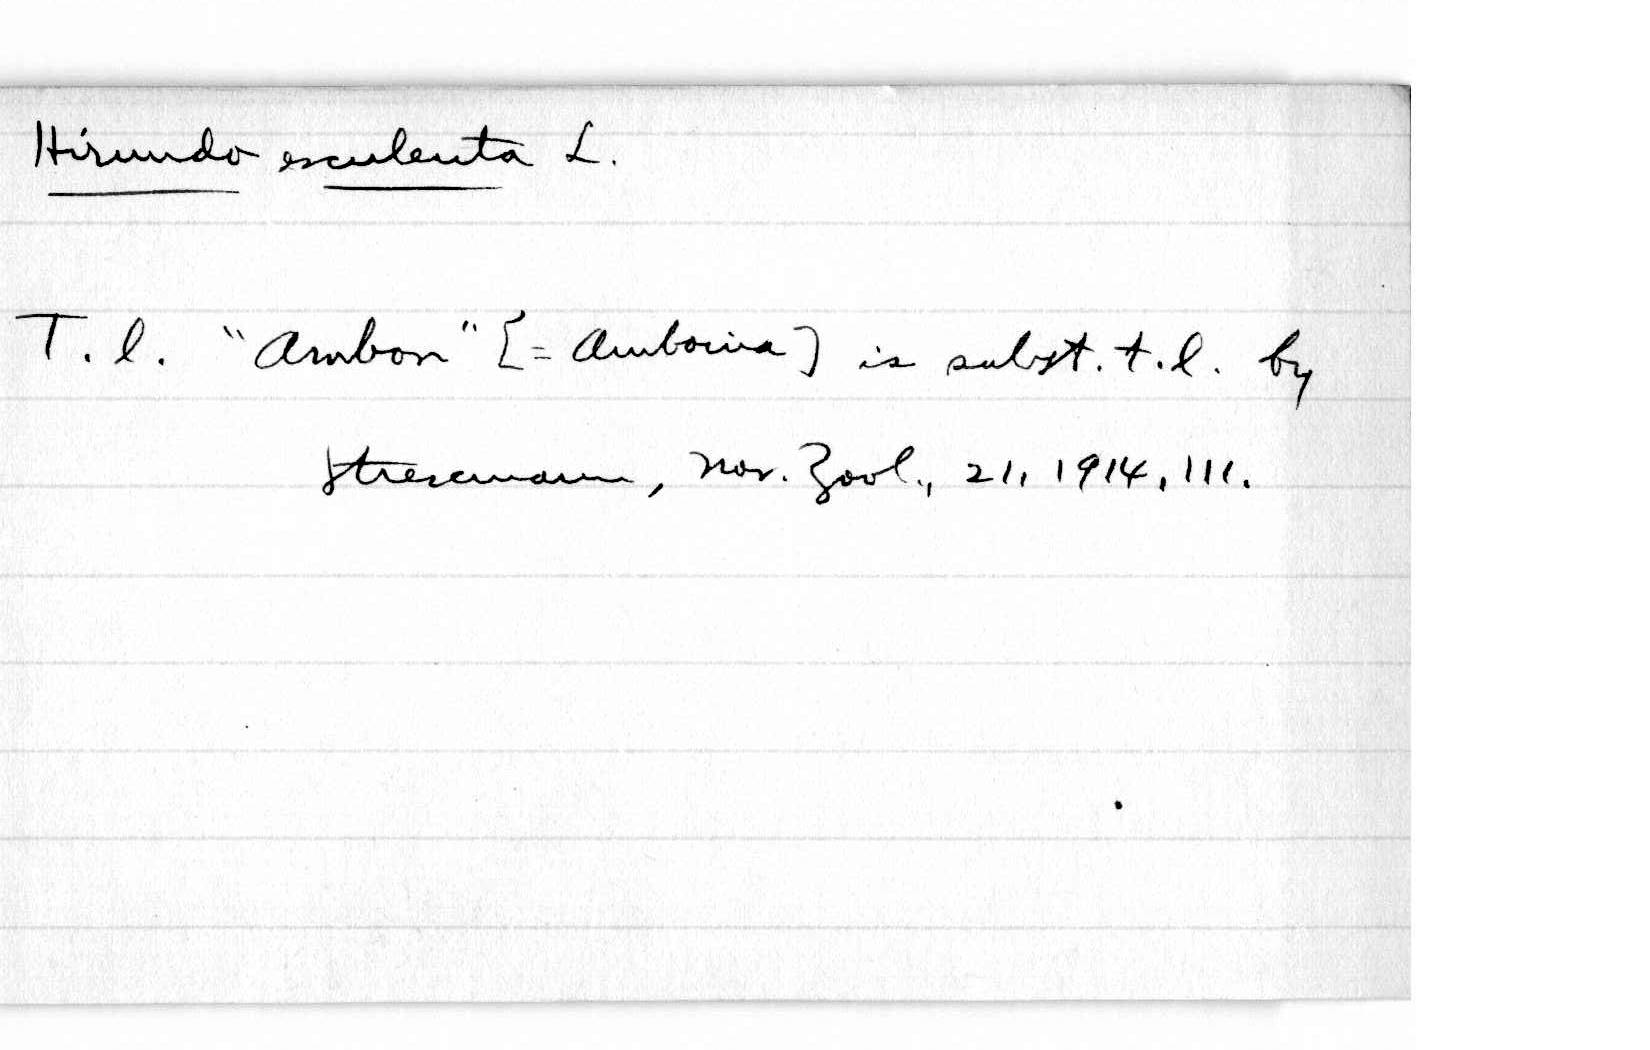 Hirundo esculenta L.
T. l. "Ambon" [= Amboina] is subst. t.l. by
Stresemann, Nov. Zool., 21, 1914, 111.